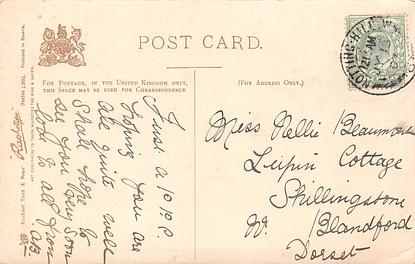 POST CARD.
FOR POSTAGE, IN THE UNITED KINGDOM ONLY,
THIS SPACE MAY BE USED FOR CORRESPONDENCE
(FOR ADDRESS ONLY.)
NOTTING HILL
Just a P.P.C.
hoping you are
all quite well
Shall hope to
see you very soon
love to all from
Miss Nellie Beaumont
Lupin Cottage
Shillingstone
Nr. Blandford
Dorset
Raphael Tuck & Sons'